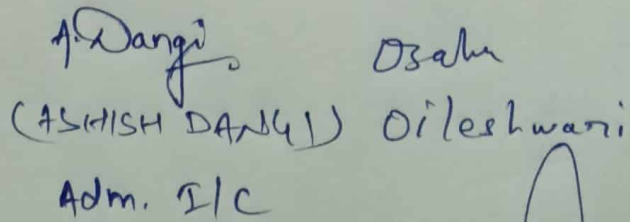 A. Dangi
(ASHISH DANGI) Oileshwari
Adm. I/C